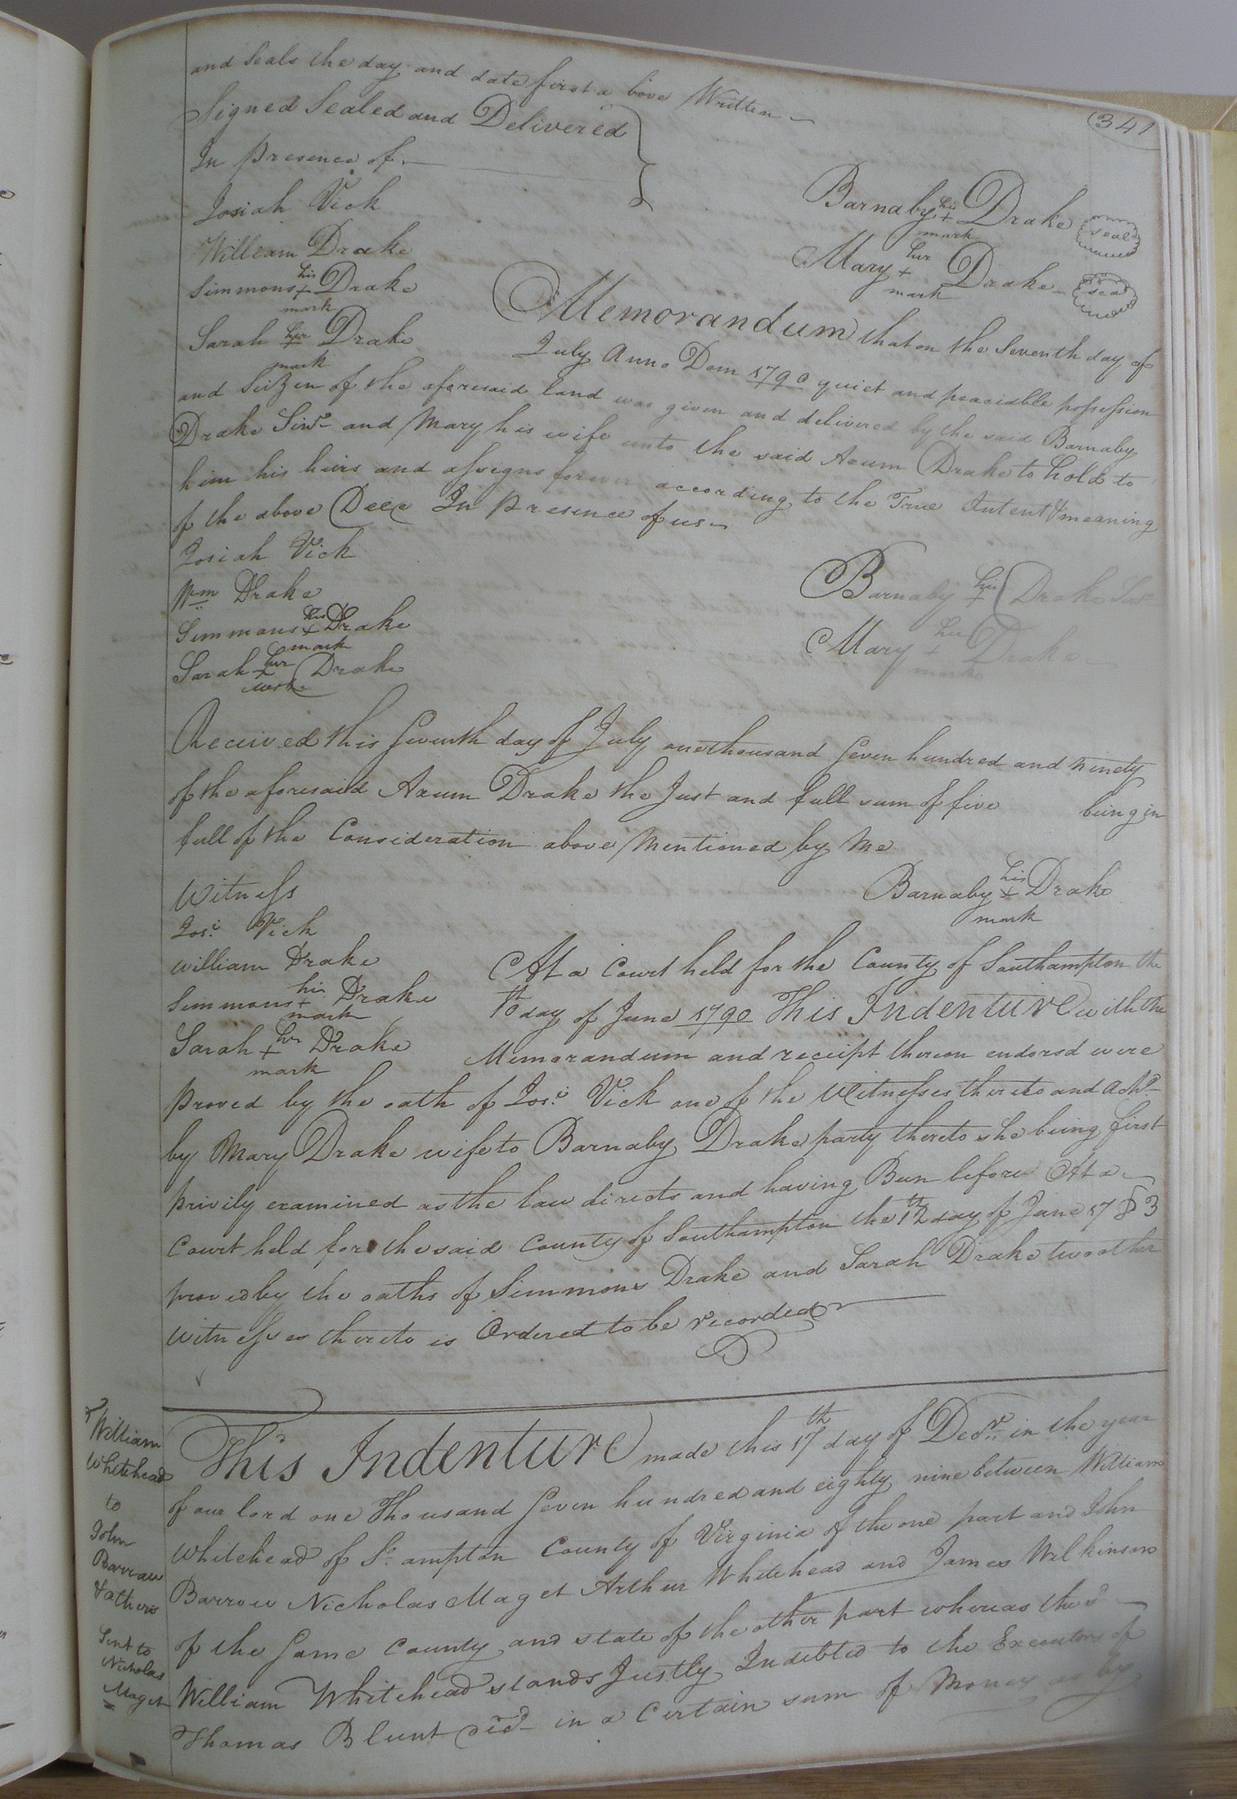 341
and Seals the day and date first a bove Written
Signed Sealed and Delivered
In Presence of
Josiah Vick
William Drake
Simmons his + mark Drake
Sarah her + mark Drake
Barnaby his + mark Drake seal
Mary her + mark Drake seal
Memorandum that on the Seventh day of
July Anno Dom 1790 quiet and peaciable possession
and Seizen of the aforesaid land was given and delivered by the said Barnaby
Drake Sinr and Mary his wife unto the said Axum Drake to hold to
him his heirs and assigns forever according to the True Intent & meaning
of the above Deed In Presence of us
Josiah Vick
Wm Drake
Simmons his + mark Drake
Sarah her + mark Drake
Barnaby his + Drake Sinr
Mary her + mark Drake
Received this Seventh day of July one thousand Seven hundred and ninety
of the aforesaid Axum Drake the Just and full sum of five being in
full of the Consideration above Mentioned by Me
Barnaby his + mark Drake
Witness
Jos: Vick
William Drake
Simmons his + mark Drake
Sarah her + mark Drake
At a Court held for the County of Southampton the
day of June 1790 This Indenture with the
Memorandum and receipt thereon endorsd were
Proved by the oath of Jos: Vick one of the Witnesses thereto and Ackd
by Mary Drake wife to Barnaby Drake party thereto she being first
privily examined as the law directs and having Bun before At a
Court held for the said County of Southampton the 12th day of June 1793
proved by the oaths of Simmons Drake and Sarah Drake two other
witnesses thereto is Ordered to be recorded
William
Whitehead
to
John
Barrow
& others
Sent to
Nicholas
Maget
This Indenture made this 17th day of Decr. in the year
of our lord one Thousand Seven hundred and eighty nine between William
Whitehead of So.ampton County of Virginia of the one part and John
Barrow Nicholas Maget Arthur Whitehead and James Wilkinson
of the Same County and state of the other part whereas the sd
William Whitehead stands Justly Indebted to the Executors of
Thomas Blunt decd in a Certain sum of Money as by